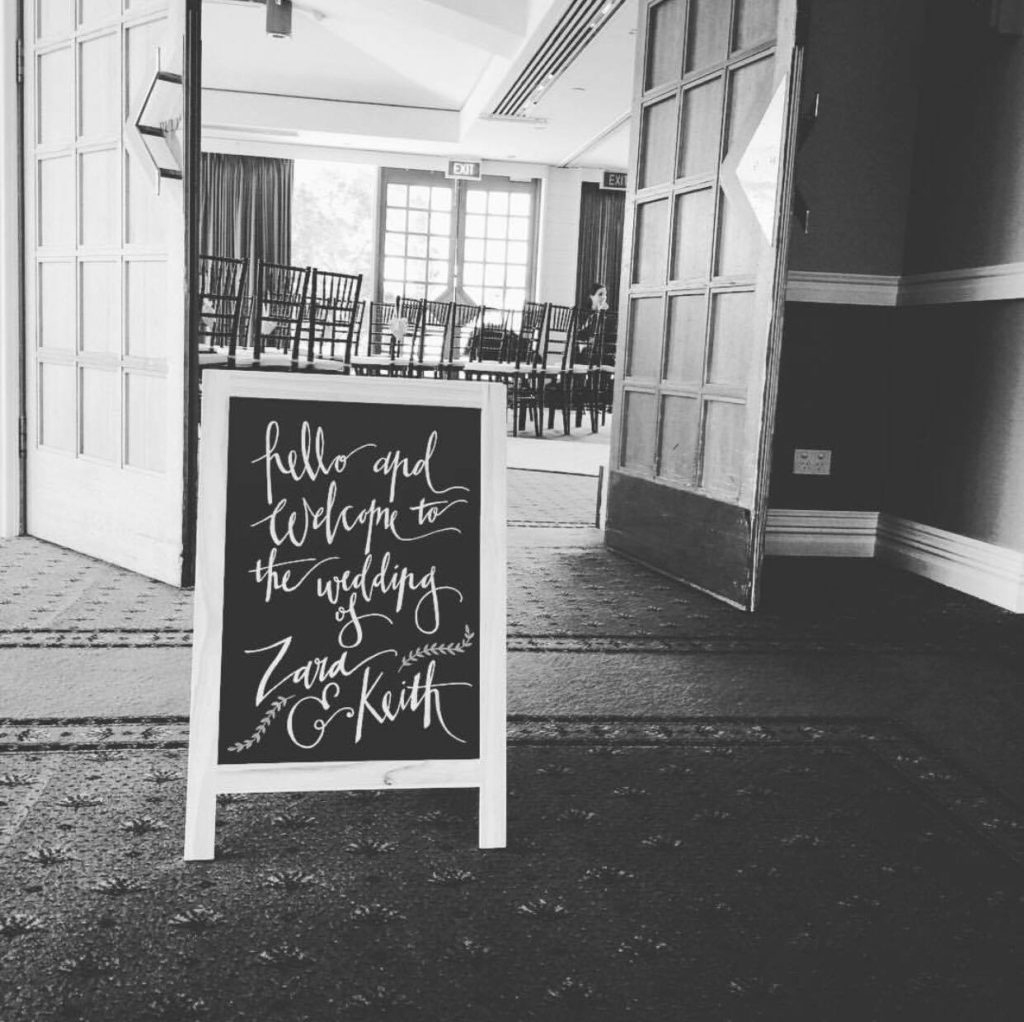 EXIT
EXIT
hello and
welcome to
the wedding
of
Zara
& Keith